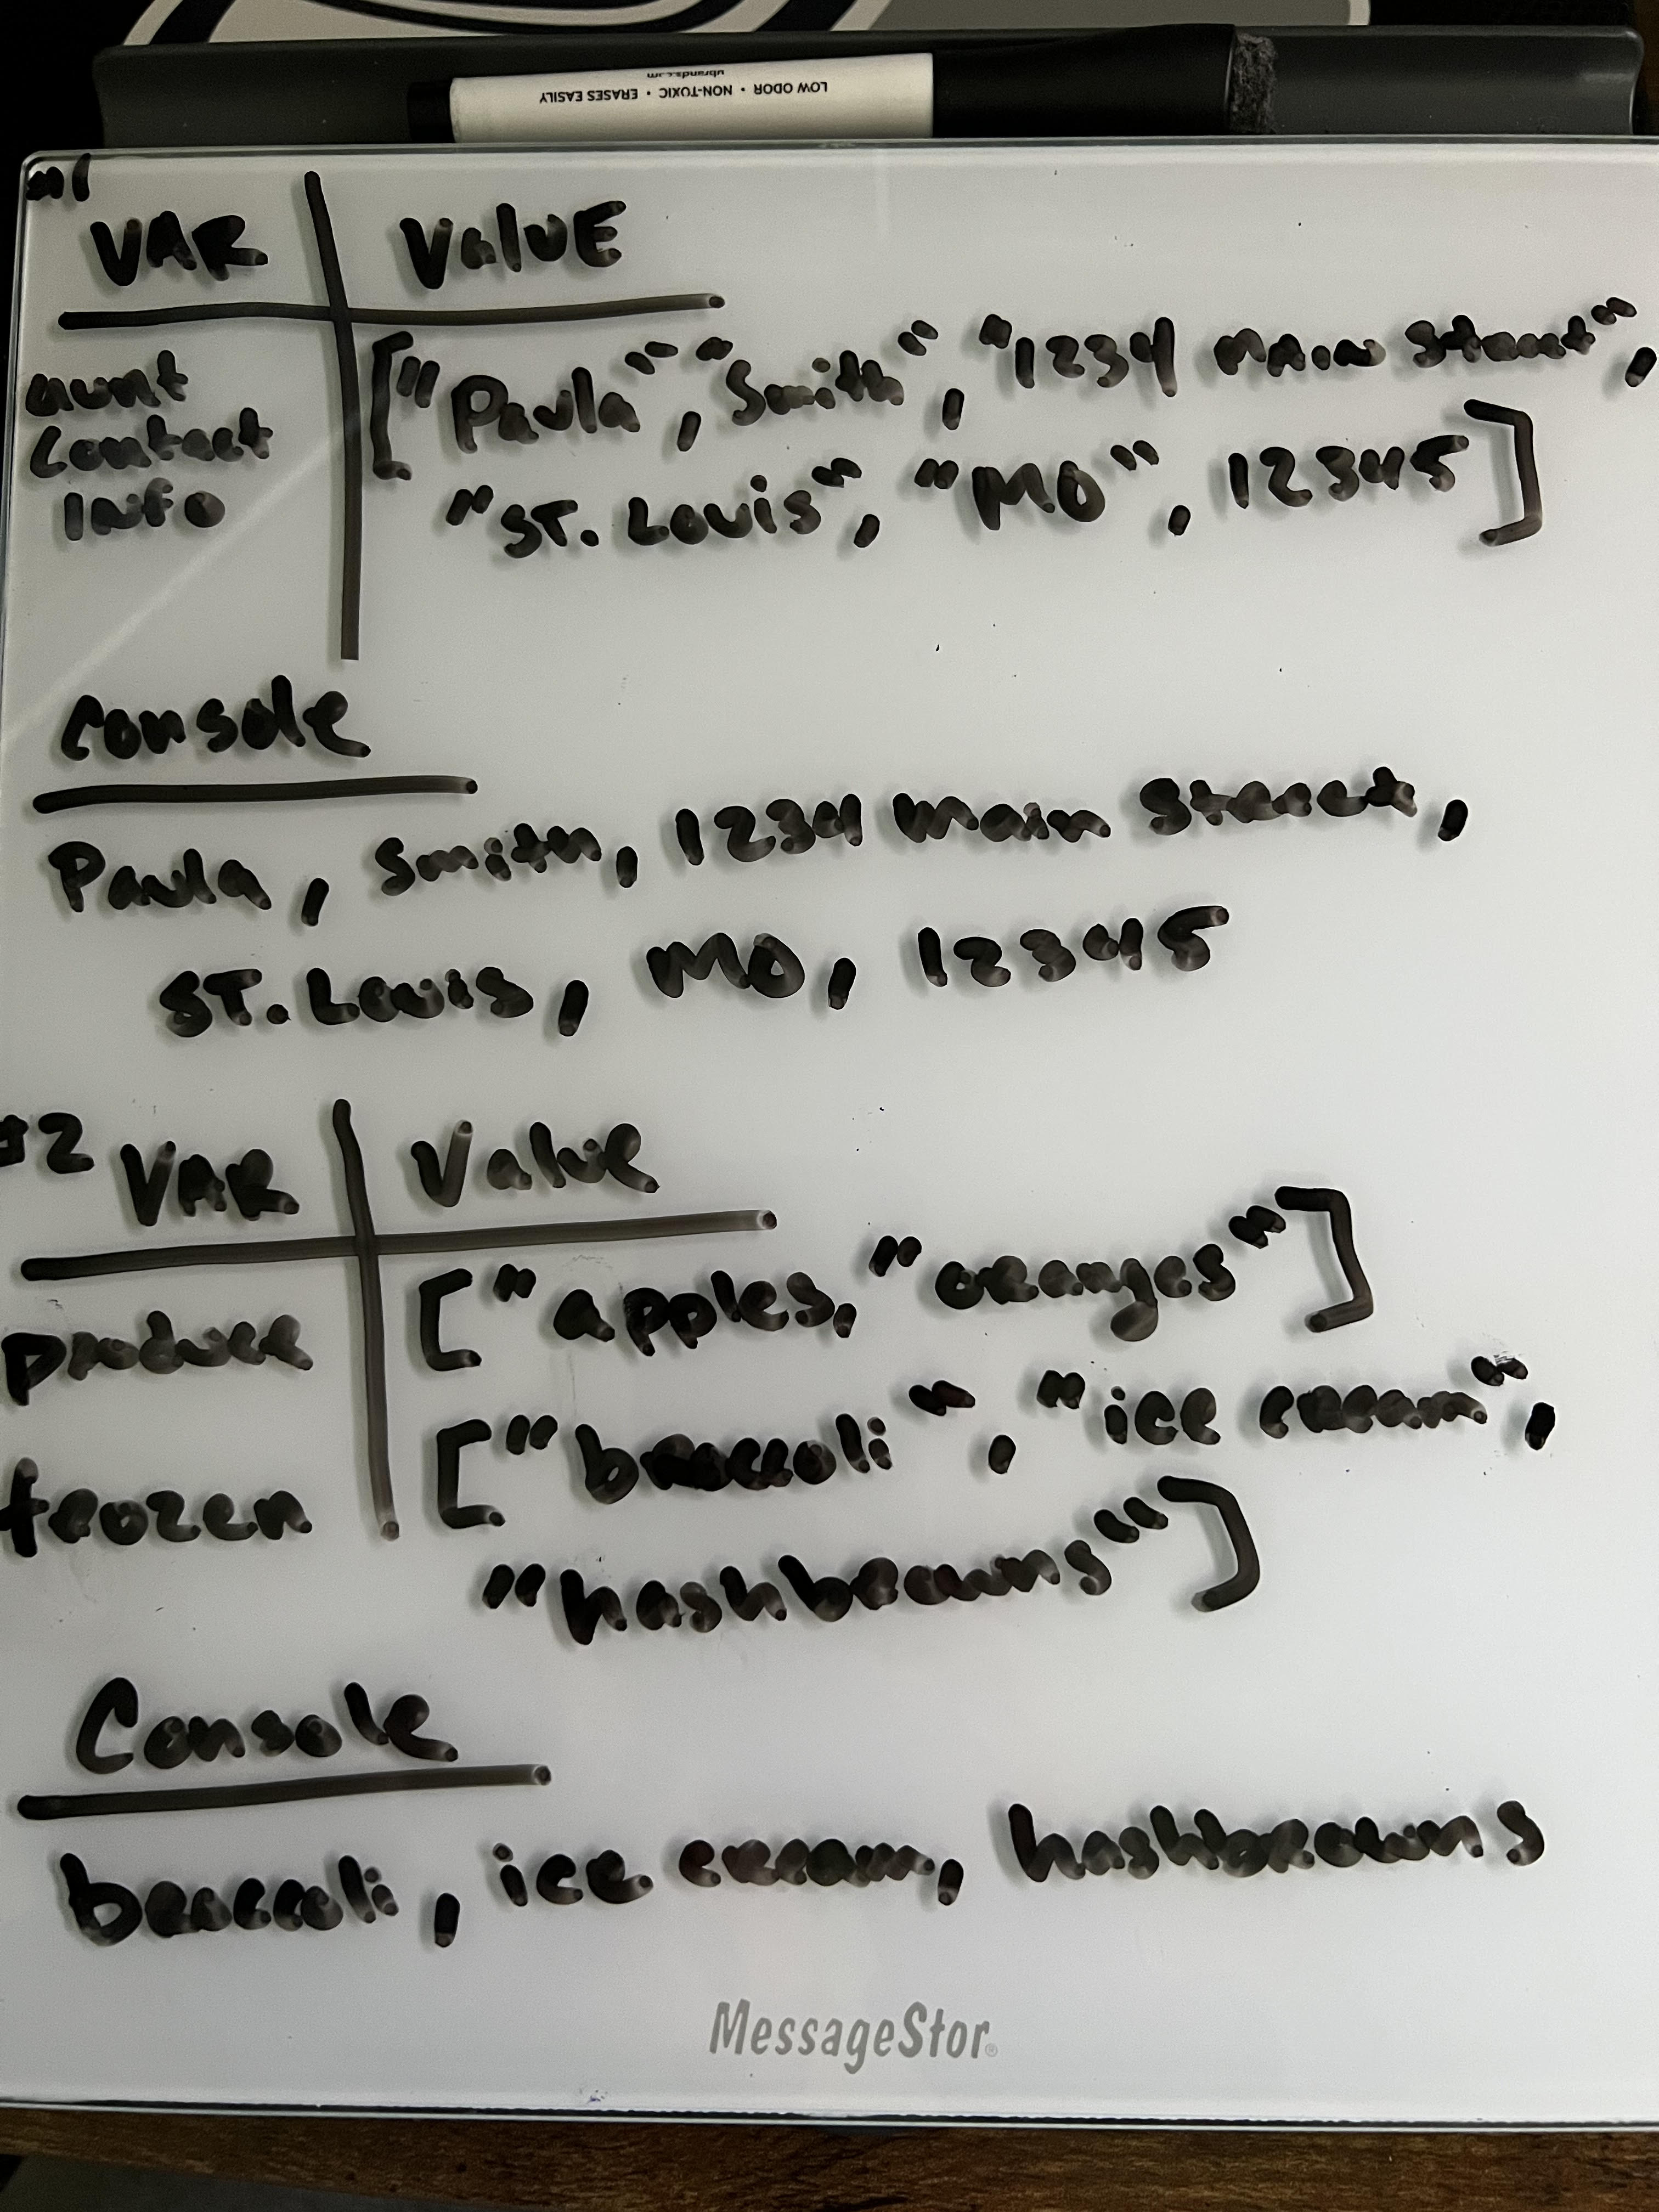 ubrands.com
LOW ODOR • NON-TOXIC • ERASES EASILY
#1
VAR ValuE
aunt
Contact
Info
["Paula", "Smith", "1234 Main Street",
"ST. Louis", "MO", 12345]
Console
Paula, Smith, 1234 Main Street,
ST. Louis, MO, 12345
#2 VAR Value
produce ["apples, "oranges"]
frozen ["broccoli", "ice cream",
"hashbrowns"]
Console
broccoli, ice cream, hashbrowns
MessageStor®